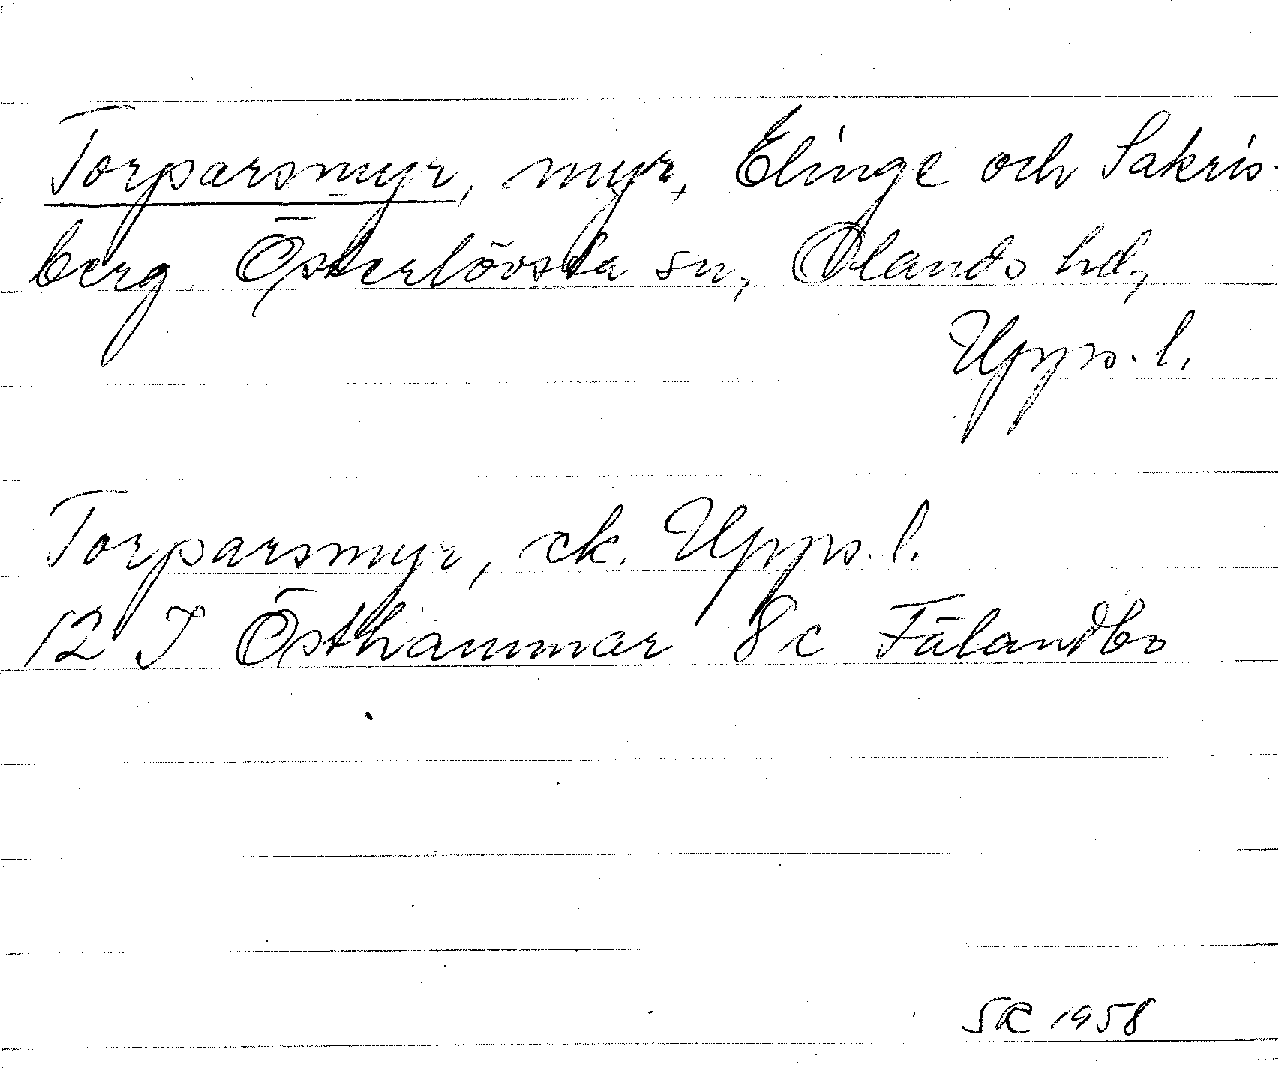 Torparsmyr, myr, Elinge och Sakris-
berg Österlövsta sn, Olands hd,
Upps. l.
Torparsmyr, ek. Upps. l.
12 I Östhammar 8c Fälandbo
SR 1958